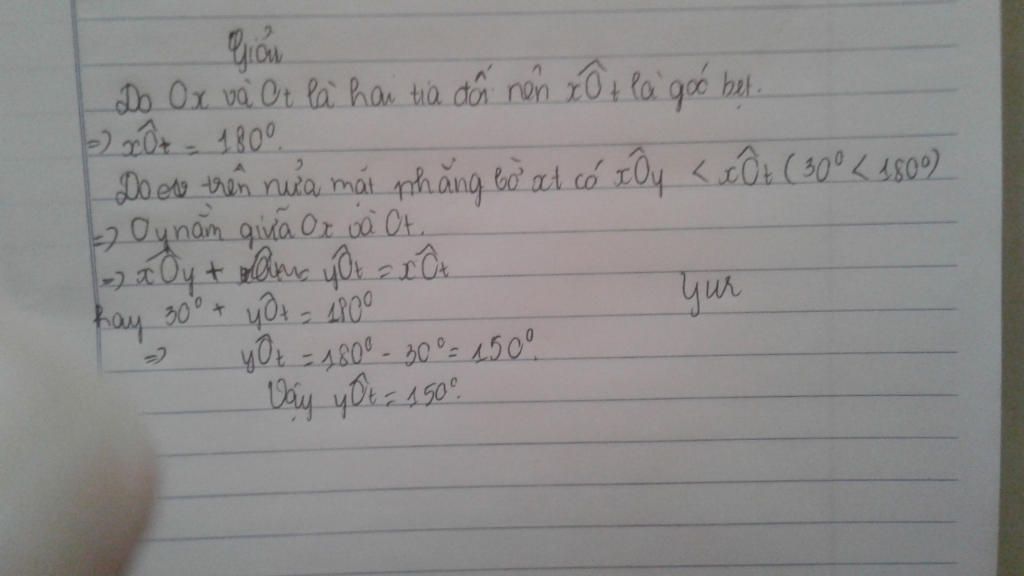 Giải
Do Ox và Ot là hai tia đối nên xÔt là góc bẹt.
=> xÔt = 180°.
Do trên nửa mặt phẳng bờ xt có xÔy < xÔt (30° < 180°)
=> Oy nằm giữa Ox và Ot.
=> xÔy + yÔt = xÔt
hay 30° + yÔt = 180°
=> yÔt = 180° - 30° = 150°.
Vậy yÔt = 150°.
Yur